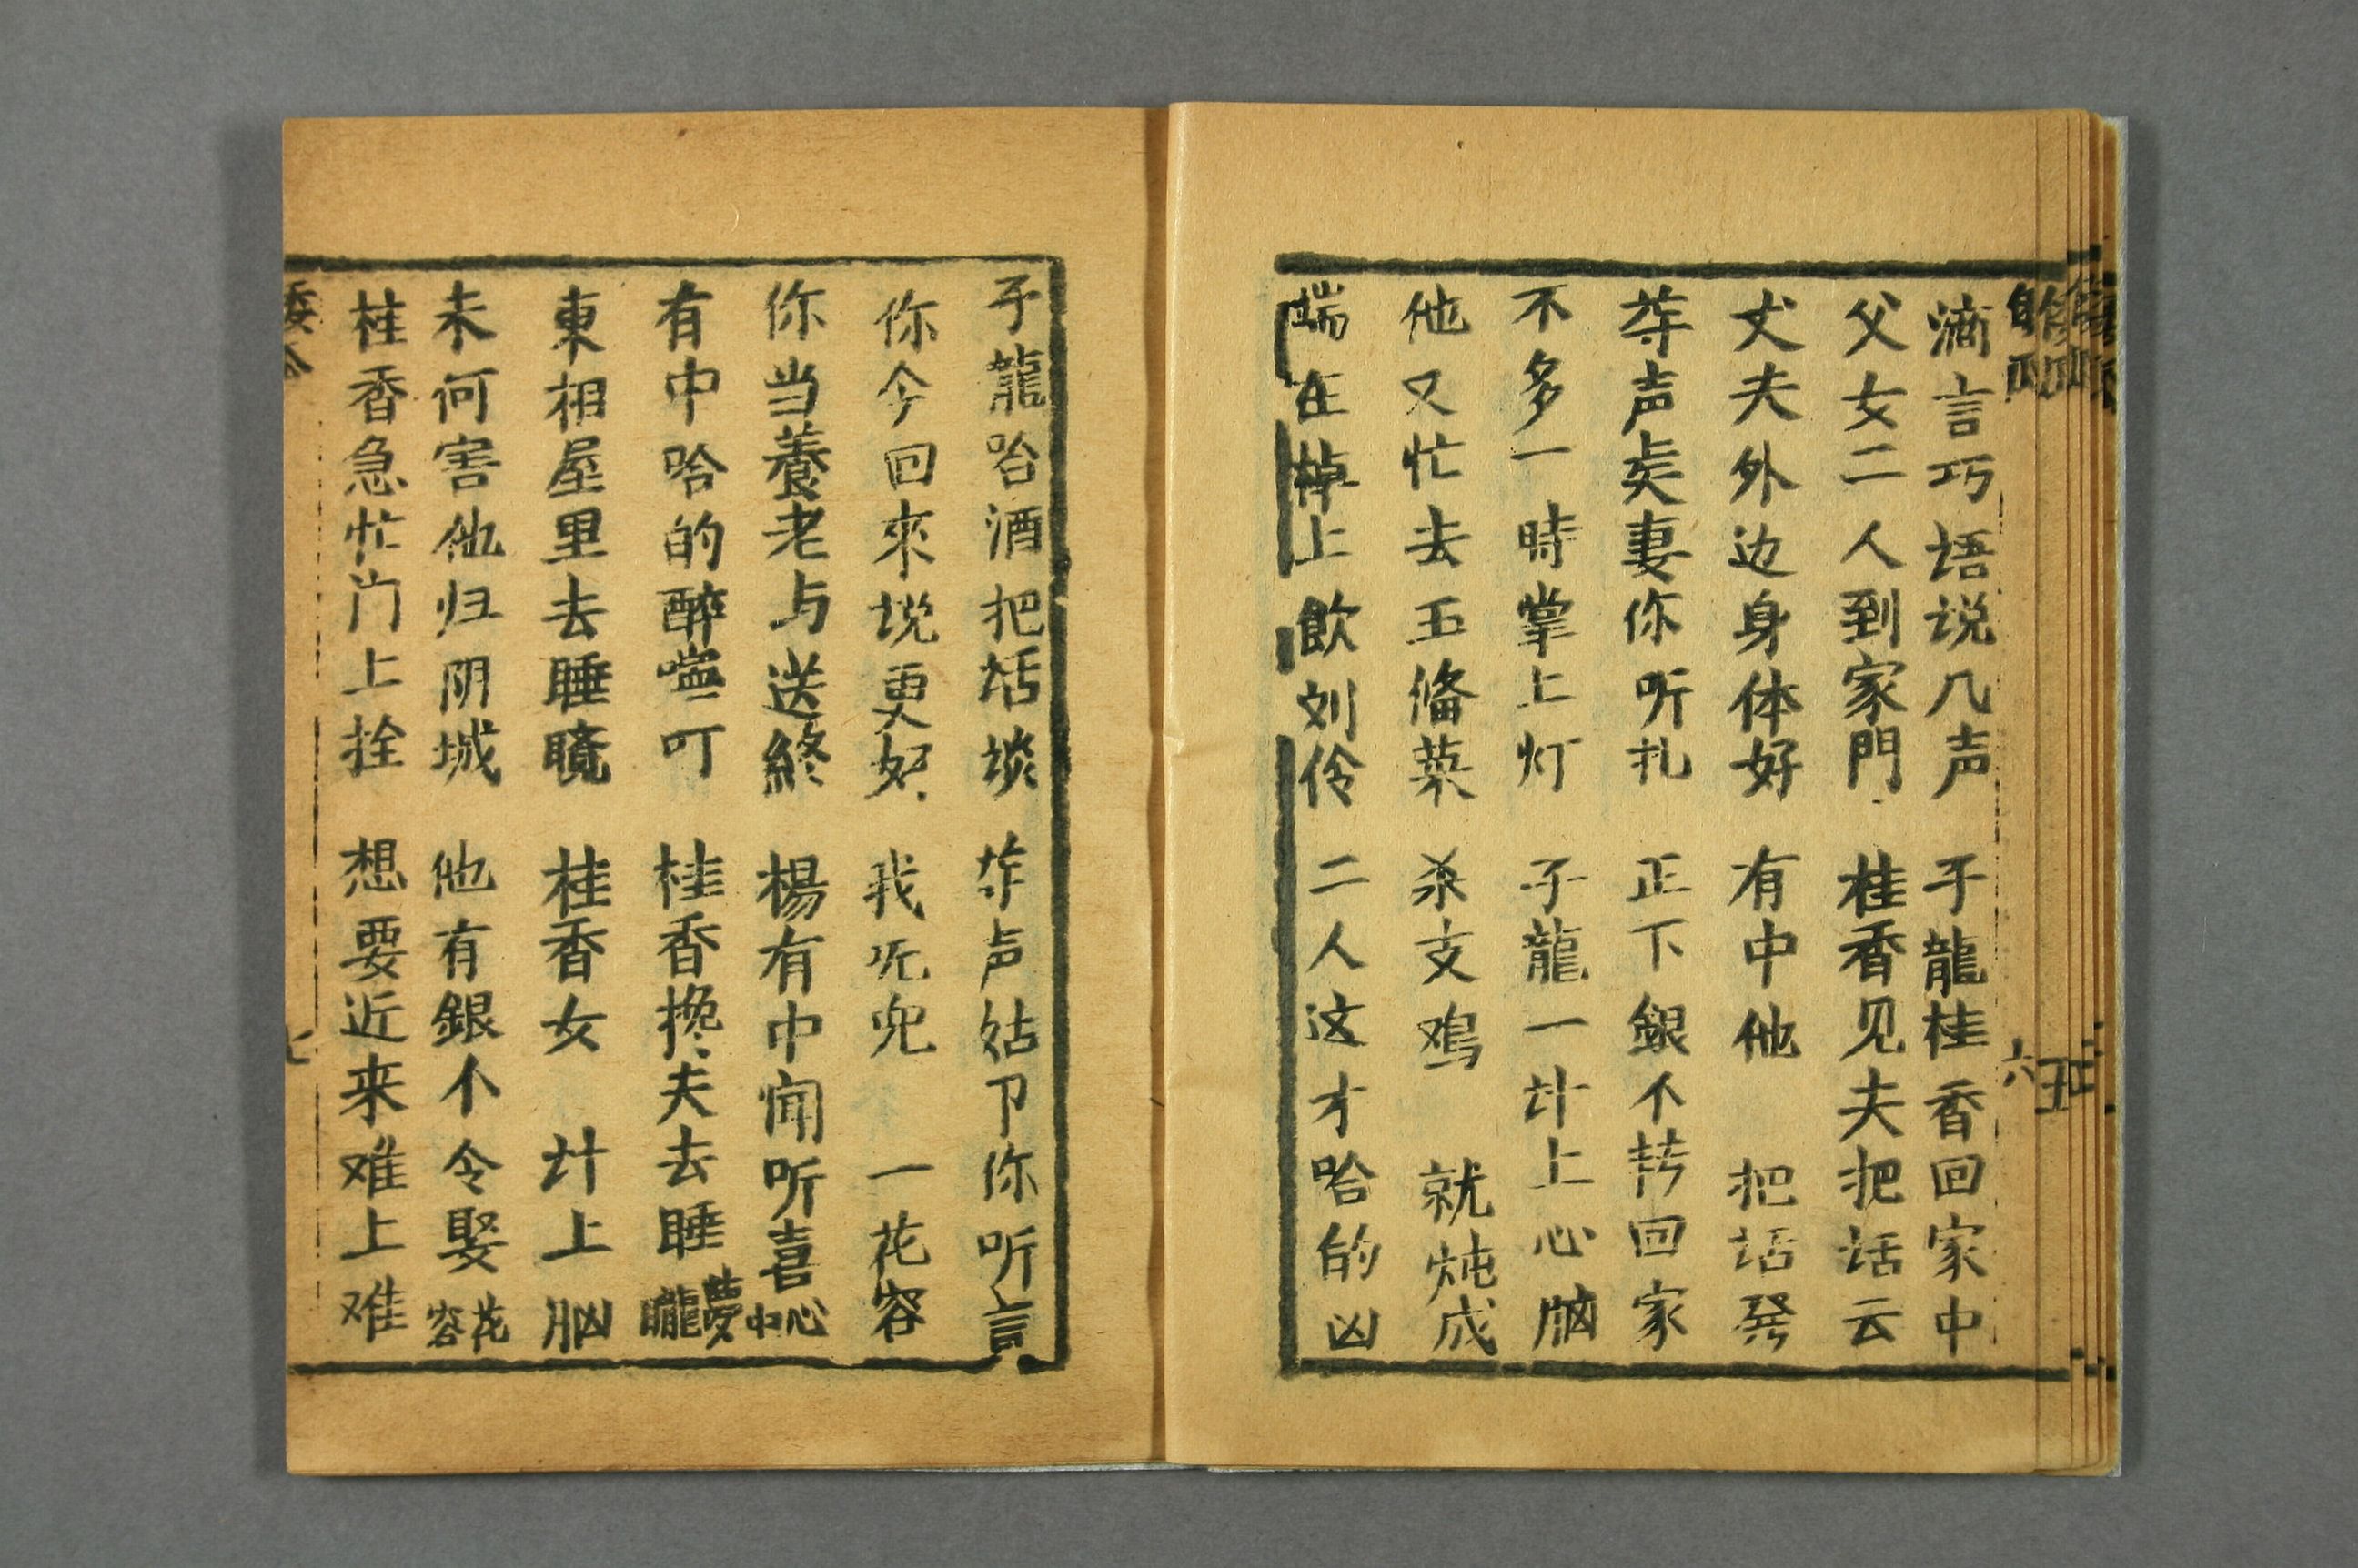 滴言巧语说几声　子龍桂香回家中
父女二人到家門　桂香见夫把话云
丈夫外边身体好　有中他　把话発
荐声矣妻你听扎　正下銀不转回家
不多一時掌上灯　子龍一计上心脑
他又忙去五俻菜　杀支鸡　就炖成
端在棹上飲刘伶　二人这才哈的凶
六
子龍哈酒把话谈　声姑卩你听言
你今回來说更好　我死兜　一花容
你当養老与送終　楊有中闻听喜心中
有中哈的醉　叮　桂香搀夫去睡夢朧
東相屋里去睡　桂香女　计上胸
未何害他归阴城　他有銀不令娶花容
桂香急忙门上拴　想要近来难上难